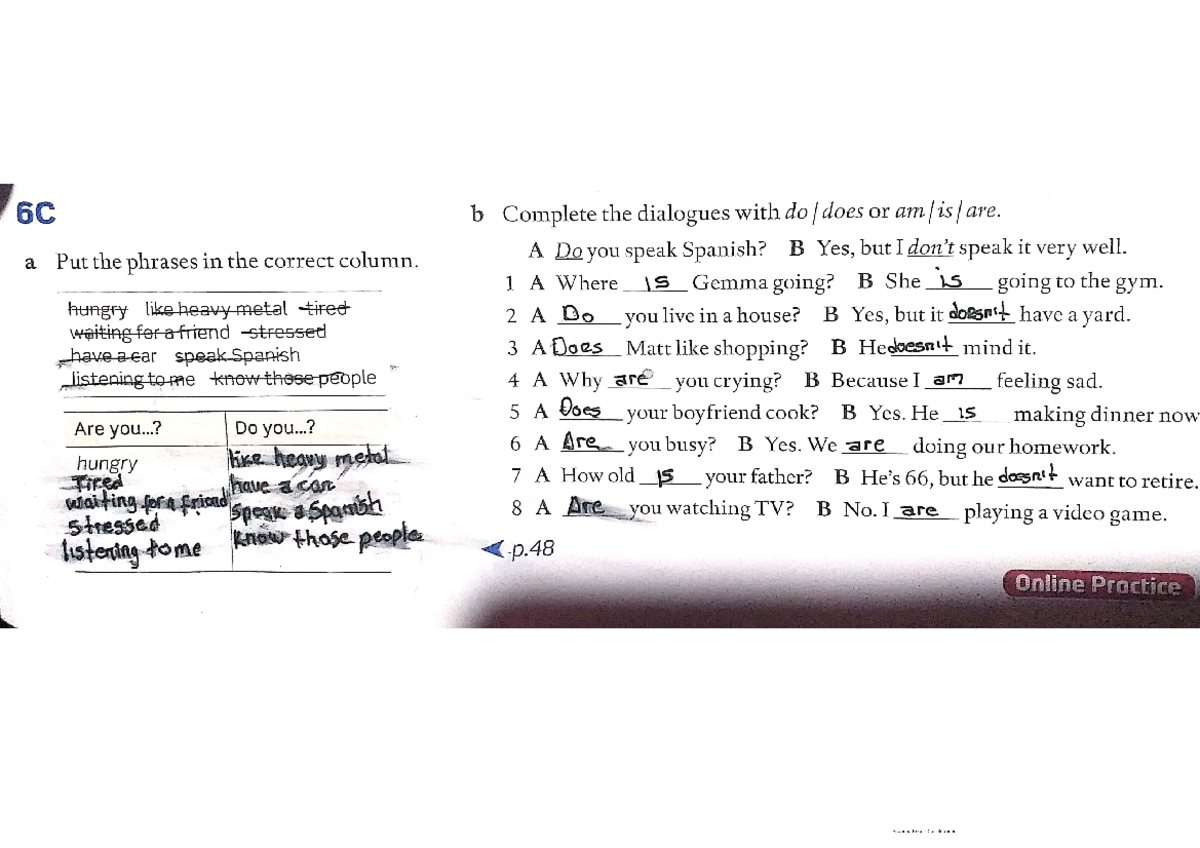 6C
a Put the phrases in the correct column.
hungry like heavy metal tired
waiting for a friend stressed
have a car speak Spanish
listening to me know those people
Are you...? Do you...?
hungry like heavy metal
Tired have a car
waiting for a friend Speak a Spanish
stressed Know those people
listening to me
b Complete the dialogues with do / does or am / is / are.
A Do you speak Spanish? B Yes, but I don't speak it very well.
1 A Where is Gemma going? B She is going to the gym.
2 A Do you live in a house? B Yes, but it doesn't have a yard.
3 A Does Matt like shopping? B He doesn't mind it.
4 A Why are you crying? B Because I am feeling sad.
5 A Does your boyfriend cook? B Yes. He is making dinner now
6 A Are you busy? B Yes. We are doing our homework.
7 A How old is your father? B He's 66, but he doesn't want to retire.
8 A Are you watching TV? B No. I are playing a video game.
p.48
Online Practice